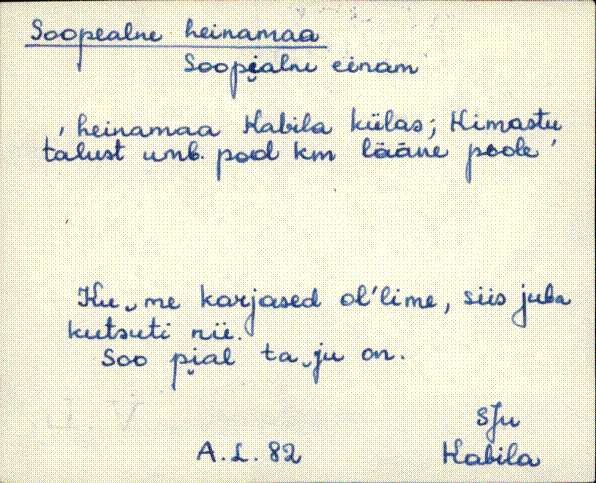 Soopealne heinamaa
Soopi̮alne einam
' heinamaa Kabila külas; Kimastu
talust umb. pool km lääne poole '
Ku‿me karjased ol'lime, siis juba
kutsuti nii.
Soo pi̮al ta‿ju on.
SJu
A.L. 82 Kabila